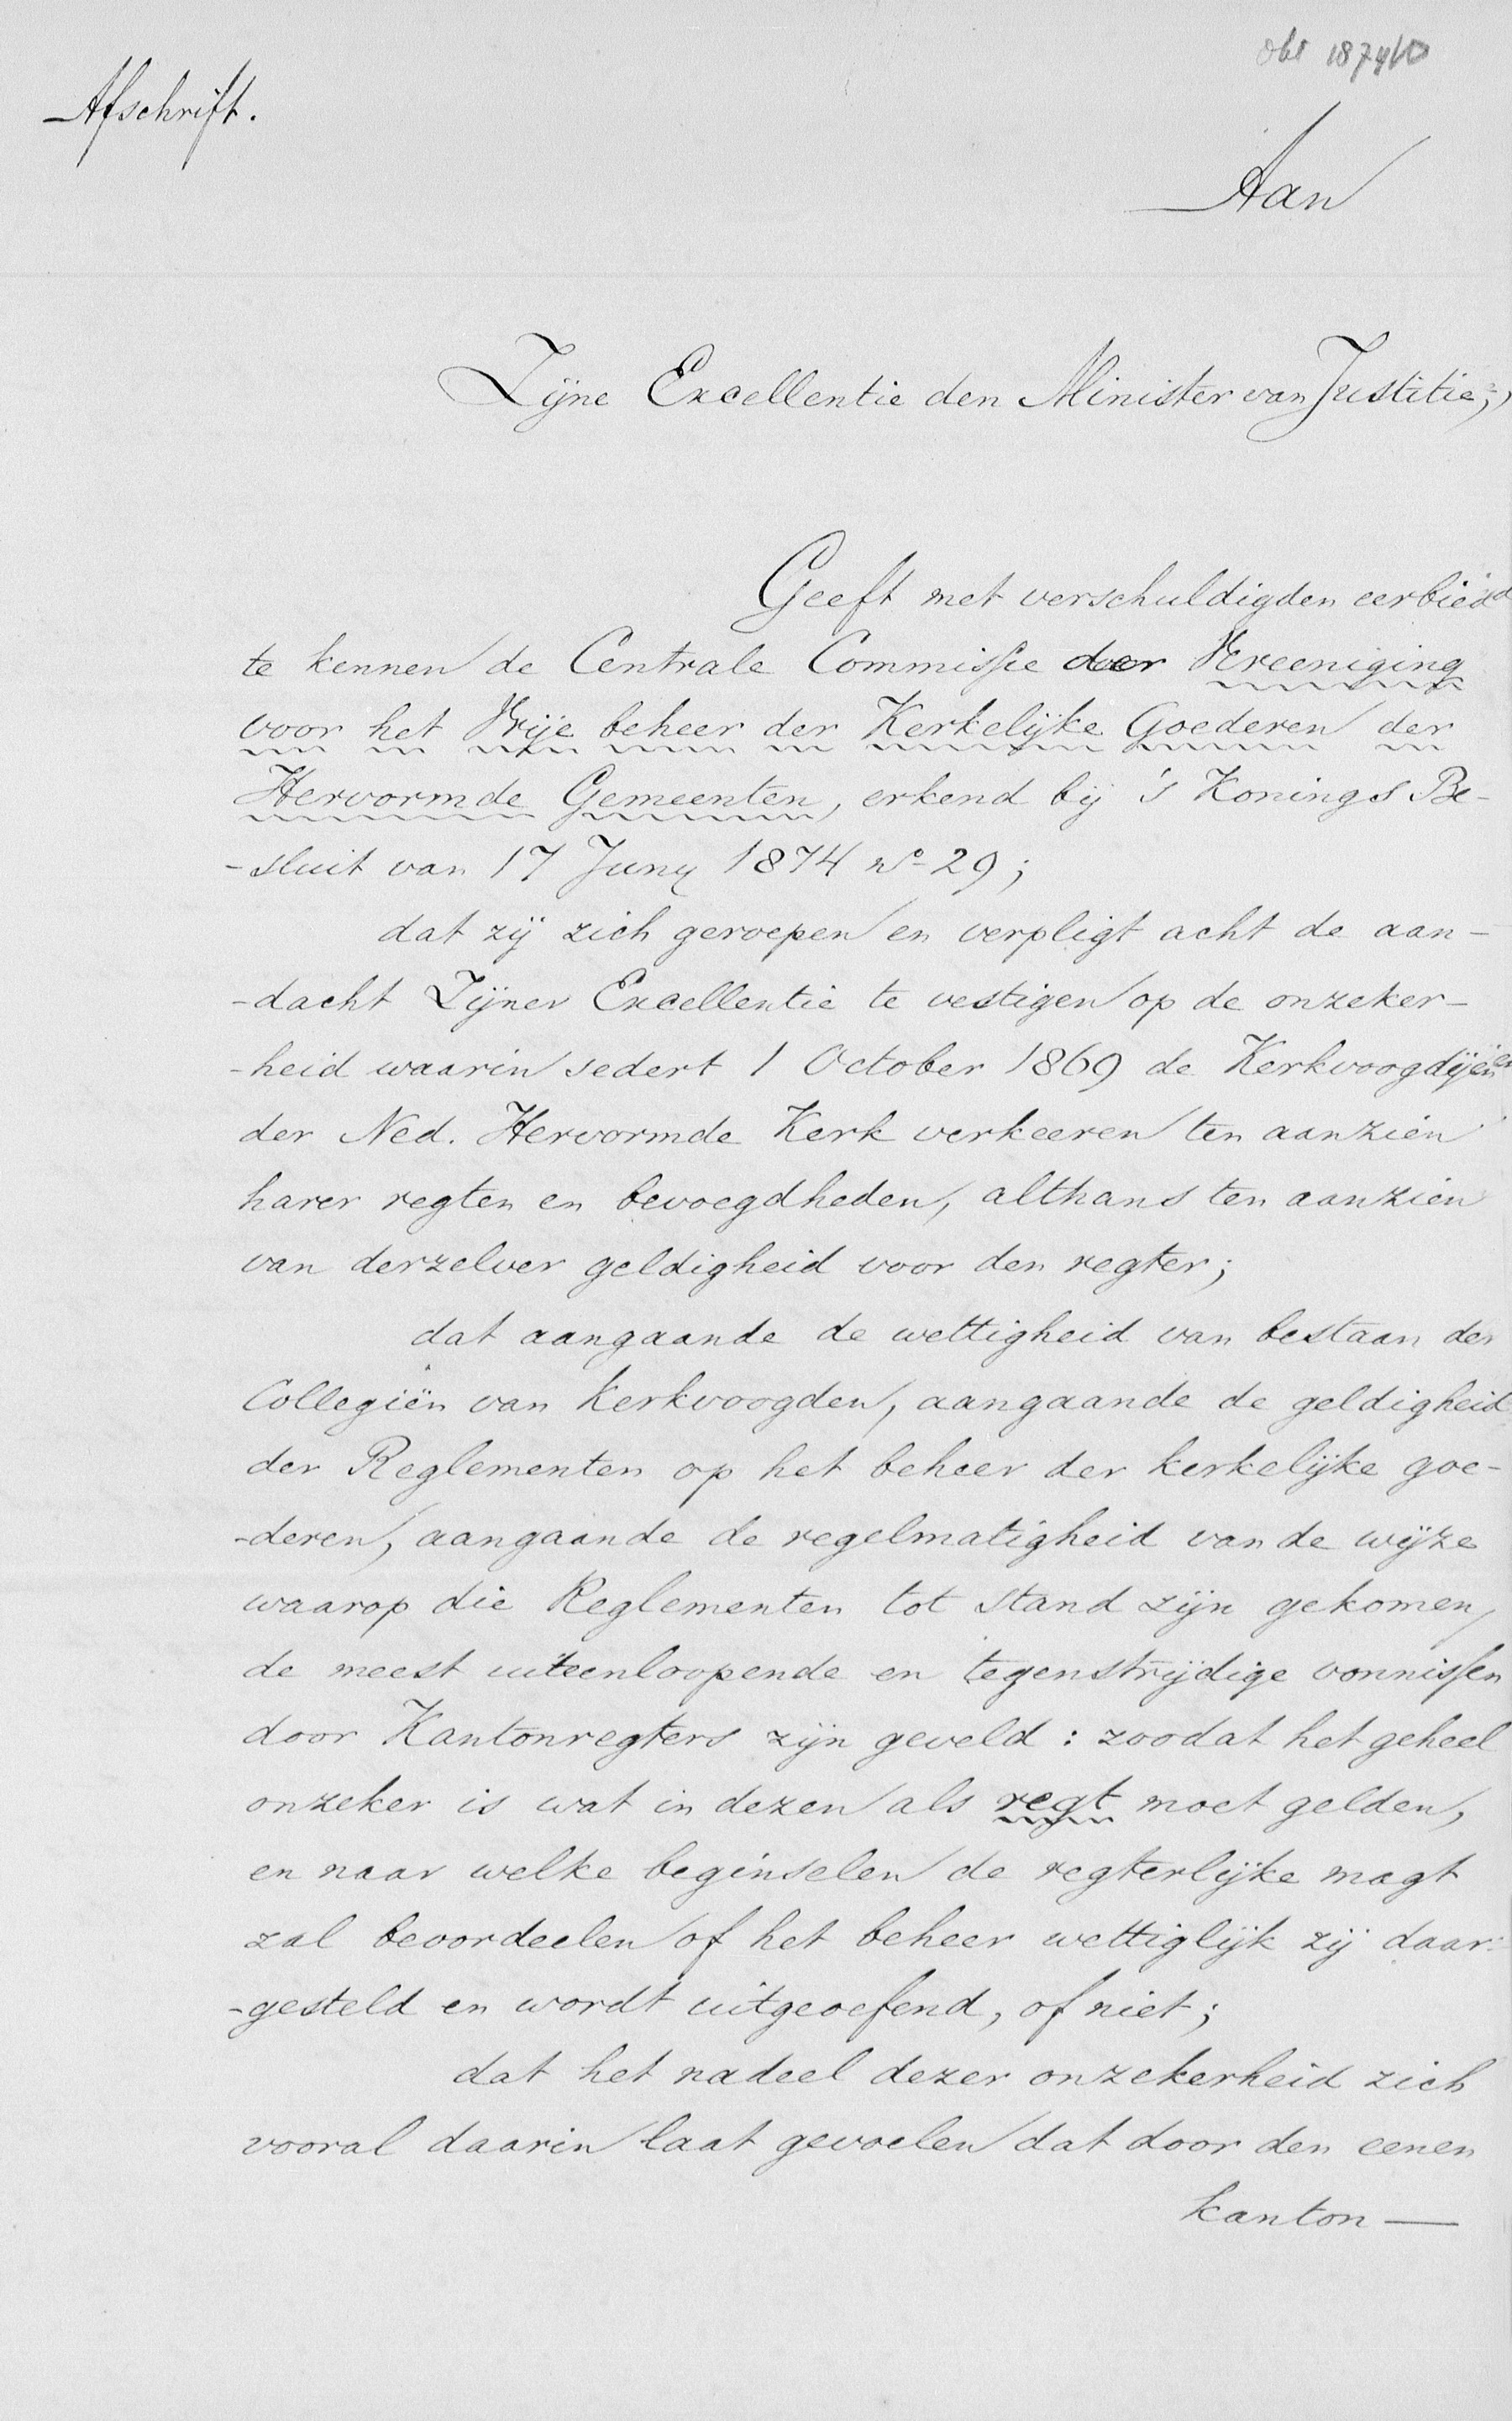 Okt 1874
Afschrift.
Aan
Zijne Excellentie den Minister van Justitie;
Geeft met verschuldigden eerbied
te kennen de Centrale Commissie der Vereeniging
voor het Vrije beheer der Kerkelijke Goederen der
Hervormde Gemeenten, erkend bij 's Konings Be-
-sluit van 17 Juny 1874 no 29;
dat zij zich geroepen en verpligt acht de aan-
-dacht Zijner Excellentie te vestigen op de onzeker-
-heid waarin sedert 1 October 1869 de Kerkvoogdijen
der Ned. Hervormde Kerk verkeeren ten aanzien
harer regten en bevoegdheden, althans ten aanzien
van derzelver geldigheid voor den regter;
dat aangaande de wettigheid van bestaan der
Collegiën van Kerkvoogden, aangaande de geldigheid
der Reglementen op het beheer der kerkelijke goe-
-deren, aangaande de regelmatigheid van de wijze
waarop die Reglementen tot stand zijn gekomen,
de meest uiteenloopende en tegenstrijdige vonnissen
door Kantonregters zijn geveld: zoodat het geheel
onzeker is wat in dezen als regt moet gelden,
en naar welke beginselen de regterlijke magt
zal beoordeelen of het beheer wettiglijk zij daar-
-gesteld en wordt uitgeoefend, of niet;
dat het nadeel dezer onzekerheid zich
vooral daarin laat gevoelen dat door den eenen
kanton—